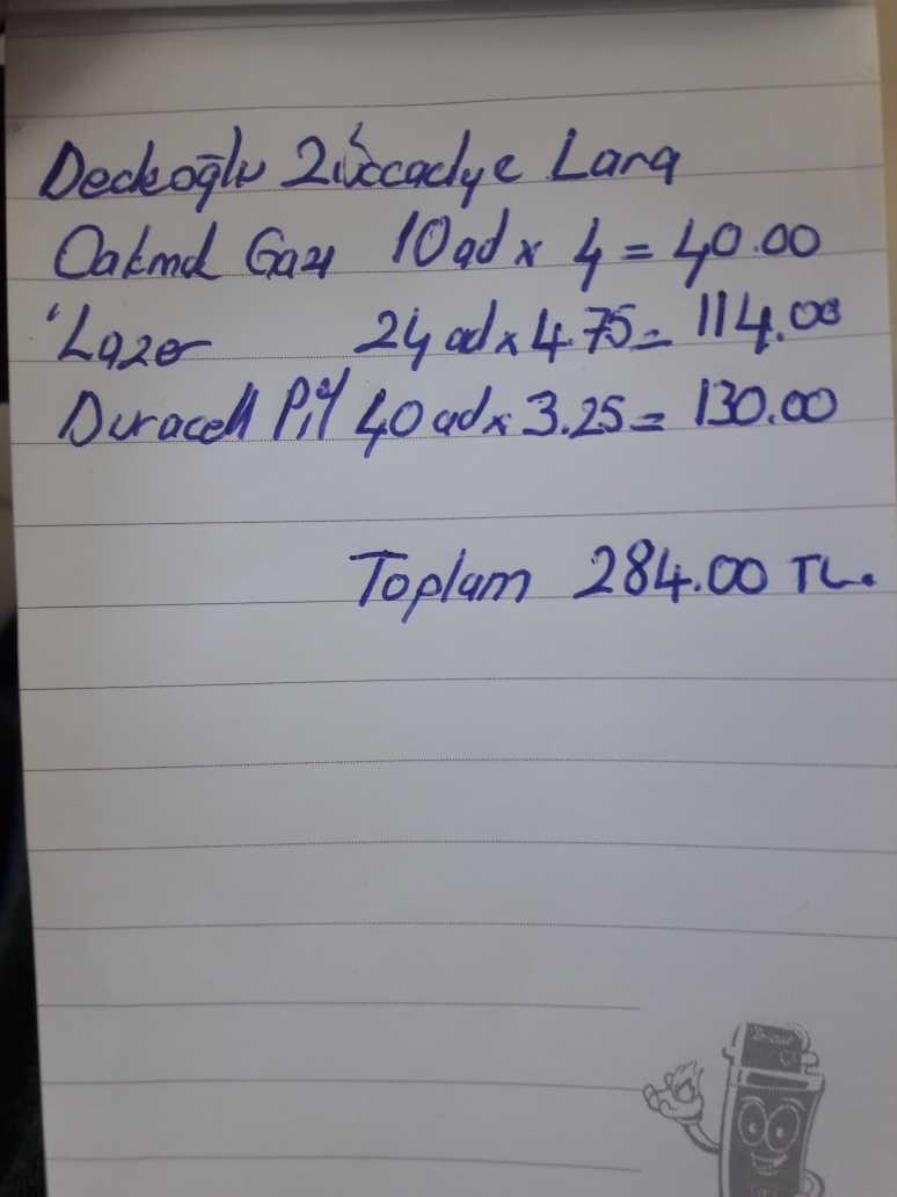 Dedeoğlu Züccaciye Lara
Çakmak Gazı 10 ad x 4 = 40.00
Lazer 24 ad x 4.75 = 114.00
Duracell Pil 40 ad x 3.25 = 130.00
Toplam 284.00 TL.